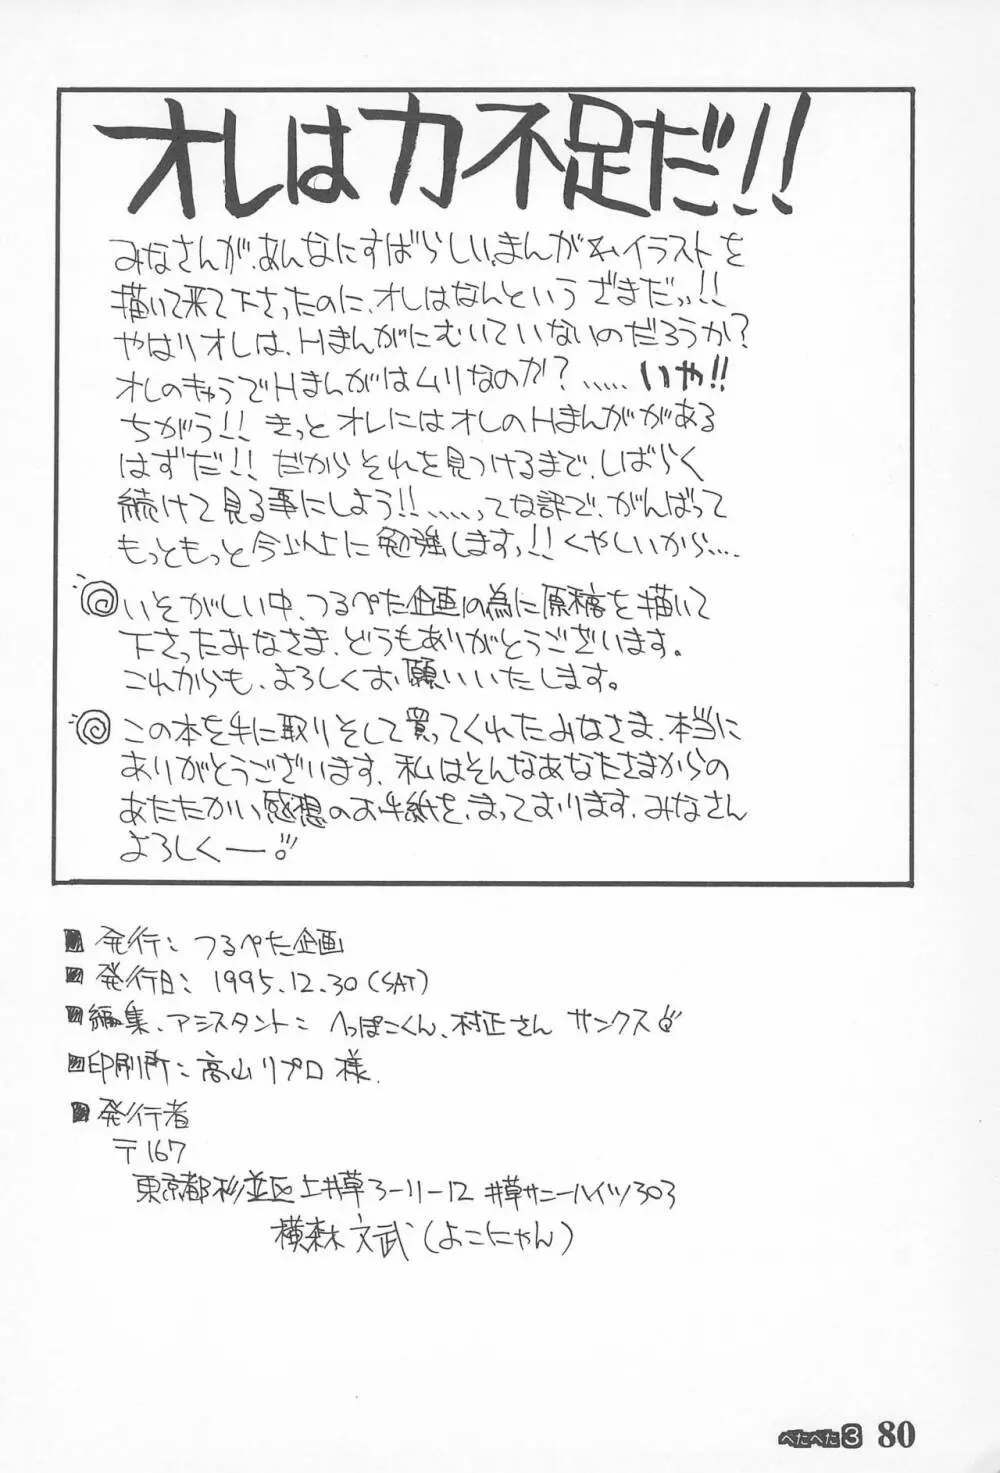 オレは力不足だ!!
みなさんが、あんなにすばらしい、まんがやイラストを
描いて来て下さったのに、オレはなんというざまだッ!!
やはりオレは、Hまんがにむいていないのだろうか?
オレのキャラでHまんがはムリなのか?……いや!!
ちがう!!きっとオレにはオレのHまんががある
はずだ!!だからそれを見つけるまで、しばらく
続けて見る事にしよう!!……って訳で、がんばって
もっともっと今以上に勉強しますッ!!くやしいから….
いそがしい中、つるぺた企画の為に原稿を描いて
下さったみなさま、どうもありがとうございます。
これからも、よろしくお願いいたします。
この本を手に取りそして買ってくれたみなさま、本当に
ありがとうございます、私はそんなあなたさまからの
あたたかい感想のお手紙を、まっております、みなさん
よろしくー!
■発行:つるぺた企画
■発行日:1995.12.30(SAT)
■編集、アシスタント:へっぽこくん、村正さん サンクス
■印刷所:高山リプロ様.
■発行者
〒167
東京都杉並区上井草3-11-12 井草サニーハイツ303
横森文武(よこにゃん)
ぺたぺた3 80